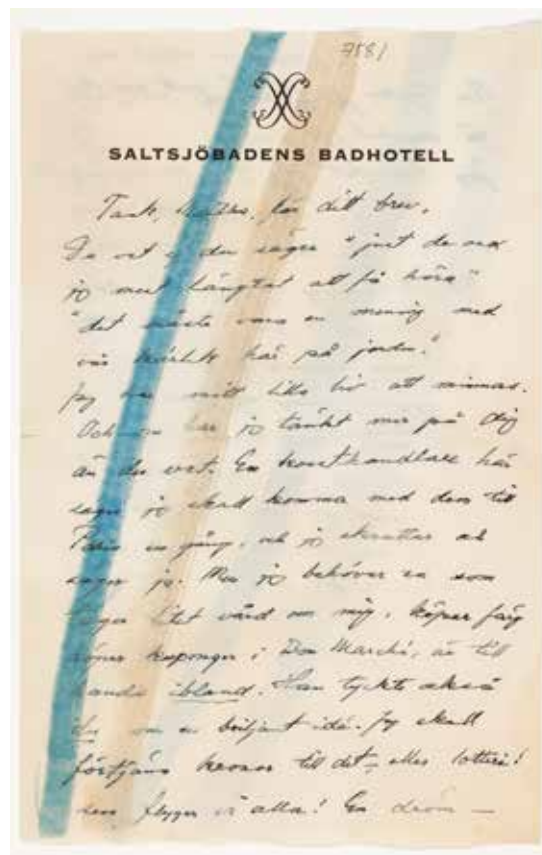 7581
SALTSJÖBADENS BADHOTELL
Tack, för ditt brev.
du säger "just de ord
jag mest längtat att få höra"
"det måste vara en mening med
vår kärlek här på jorden."
Jag har mitt lilla liv att minnas.
Och jag tänkt mer på dig
än du vet. En konsthandlare här
säger jag skall komma med dem till
Paris en gång, och jag skrattar och
säger ja. Men jag behöver en som
tager litet vård om mig, köper färg
köper kuponger i Bon Marché, är till
hands ibland. Han tyckte också
var en briljant idé. Jag skall
förtjäna kronor till det – eller lotteri!
sen flyger vi alla! En dröm —